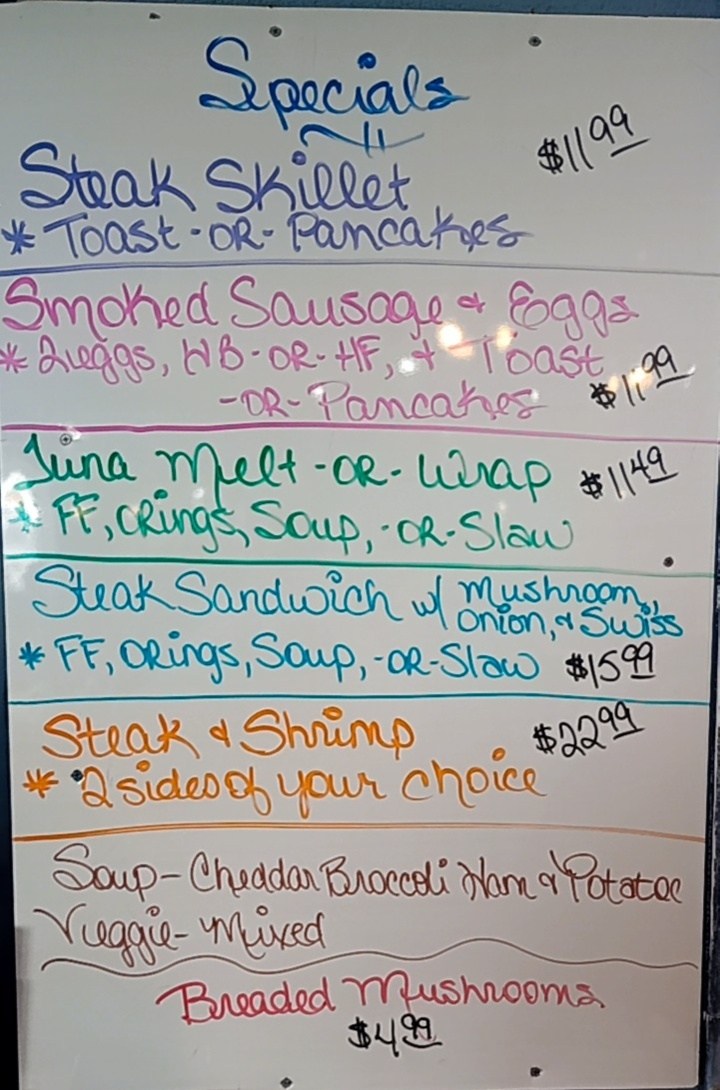 Specials
Steak Skillet $11.99
* Toast -OR- Pancakes
Smoked Sausage & Eggs
* 2 eggs, HB -OR- HF, & Toast
-OR- Pancakes $11.99
Tuna Melt -OR- Wrap $11.49
* FF, ORings, Soup, -OR- Slaw
Steak Sandwich w/ Mushroom,
Onion, & Swiss
* FF, ORings, Soup, -OR- Slaw $15.99
Steak & Shrimp $22.99
* 2 sides of your choice
Soup - Cheddar Broccoli Ham & Potatoe
Veggie - Mixed
Breaded Mushrooms
$4.99